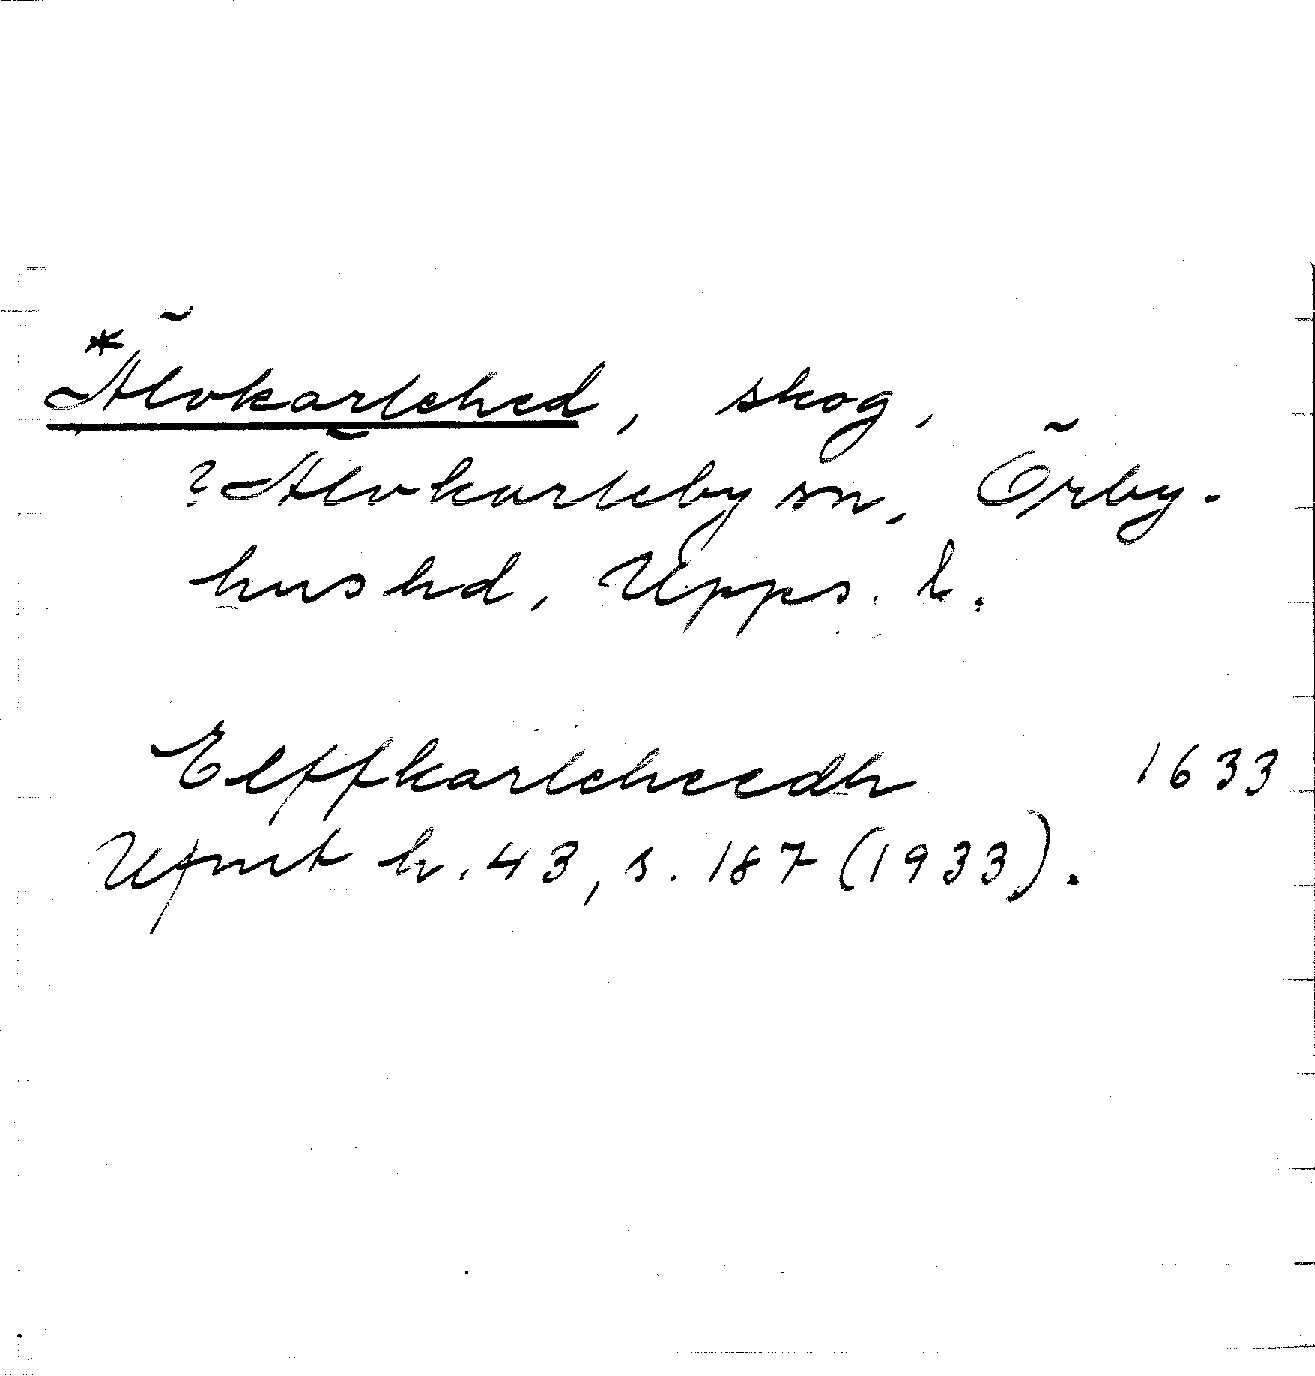 *Älvkarlehed, skog,
?Älvkarleby sn, Örby-
hus hd, Upps. l.
Elffkarleheedh 1633
Ufmt h. 43, s. 187 (1933).